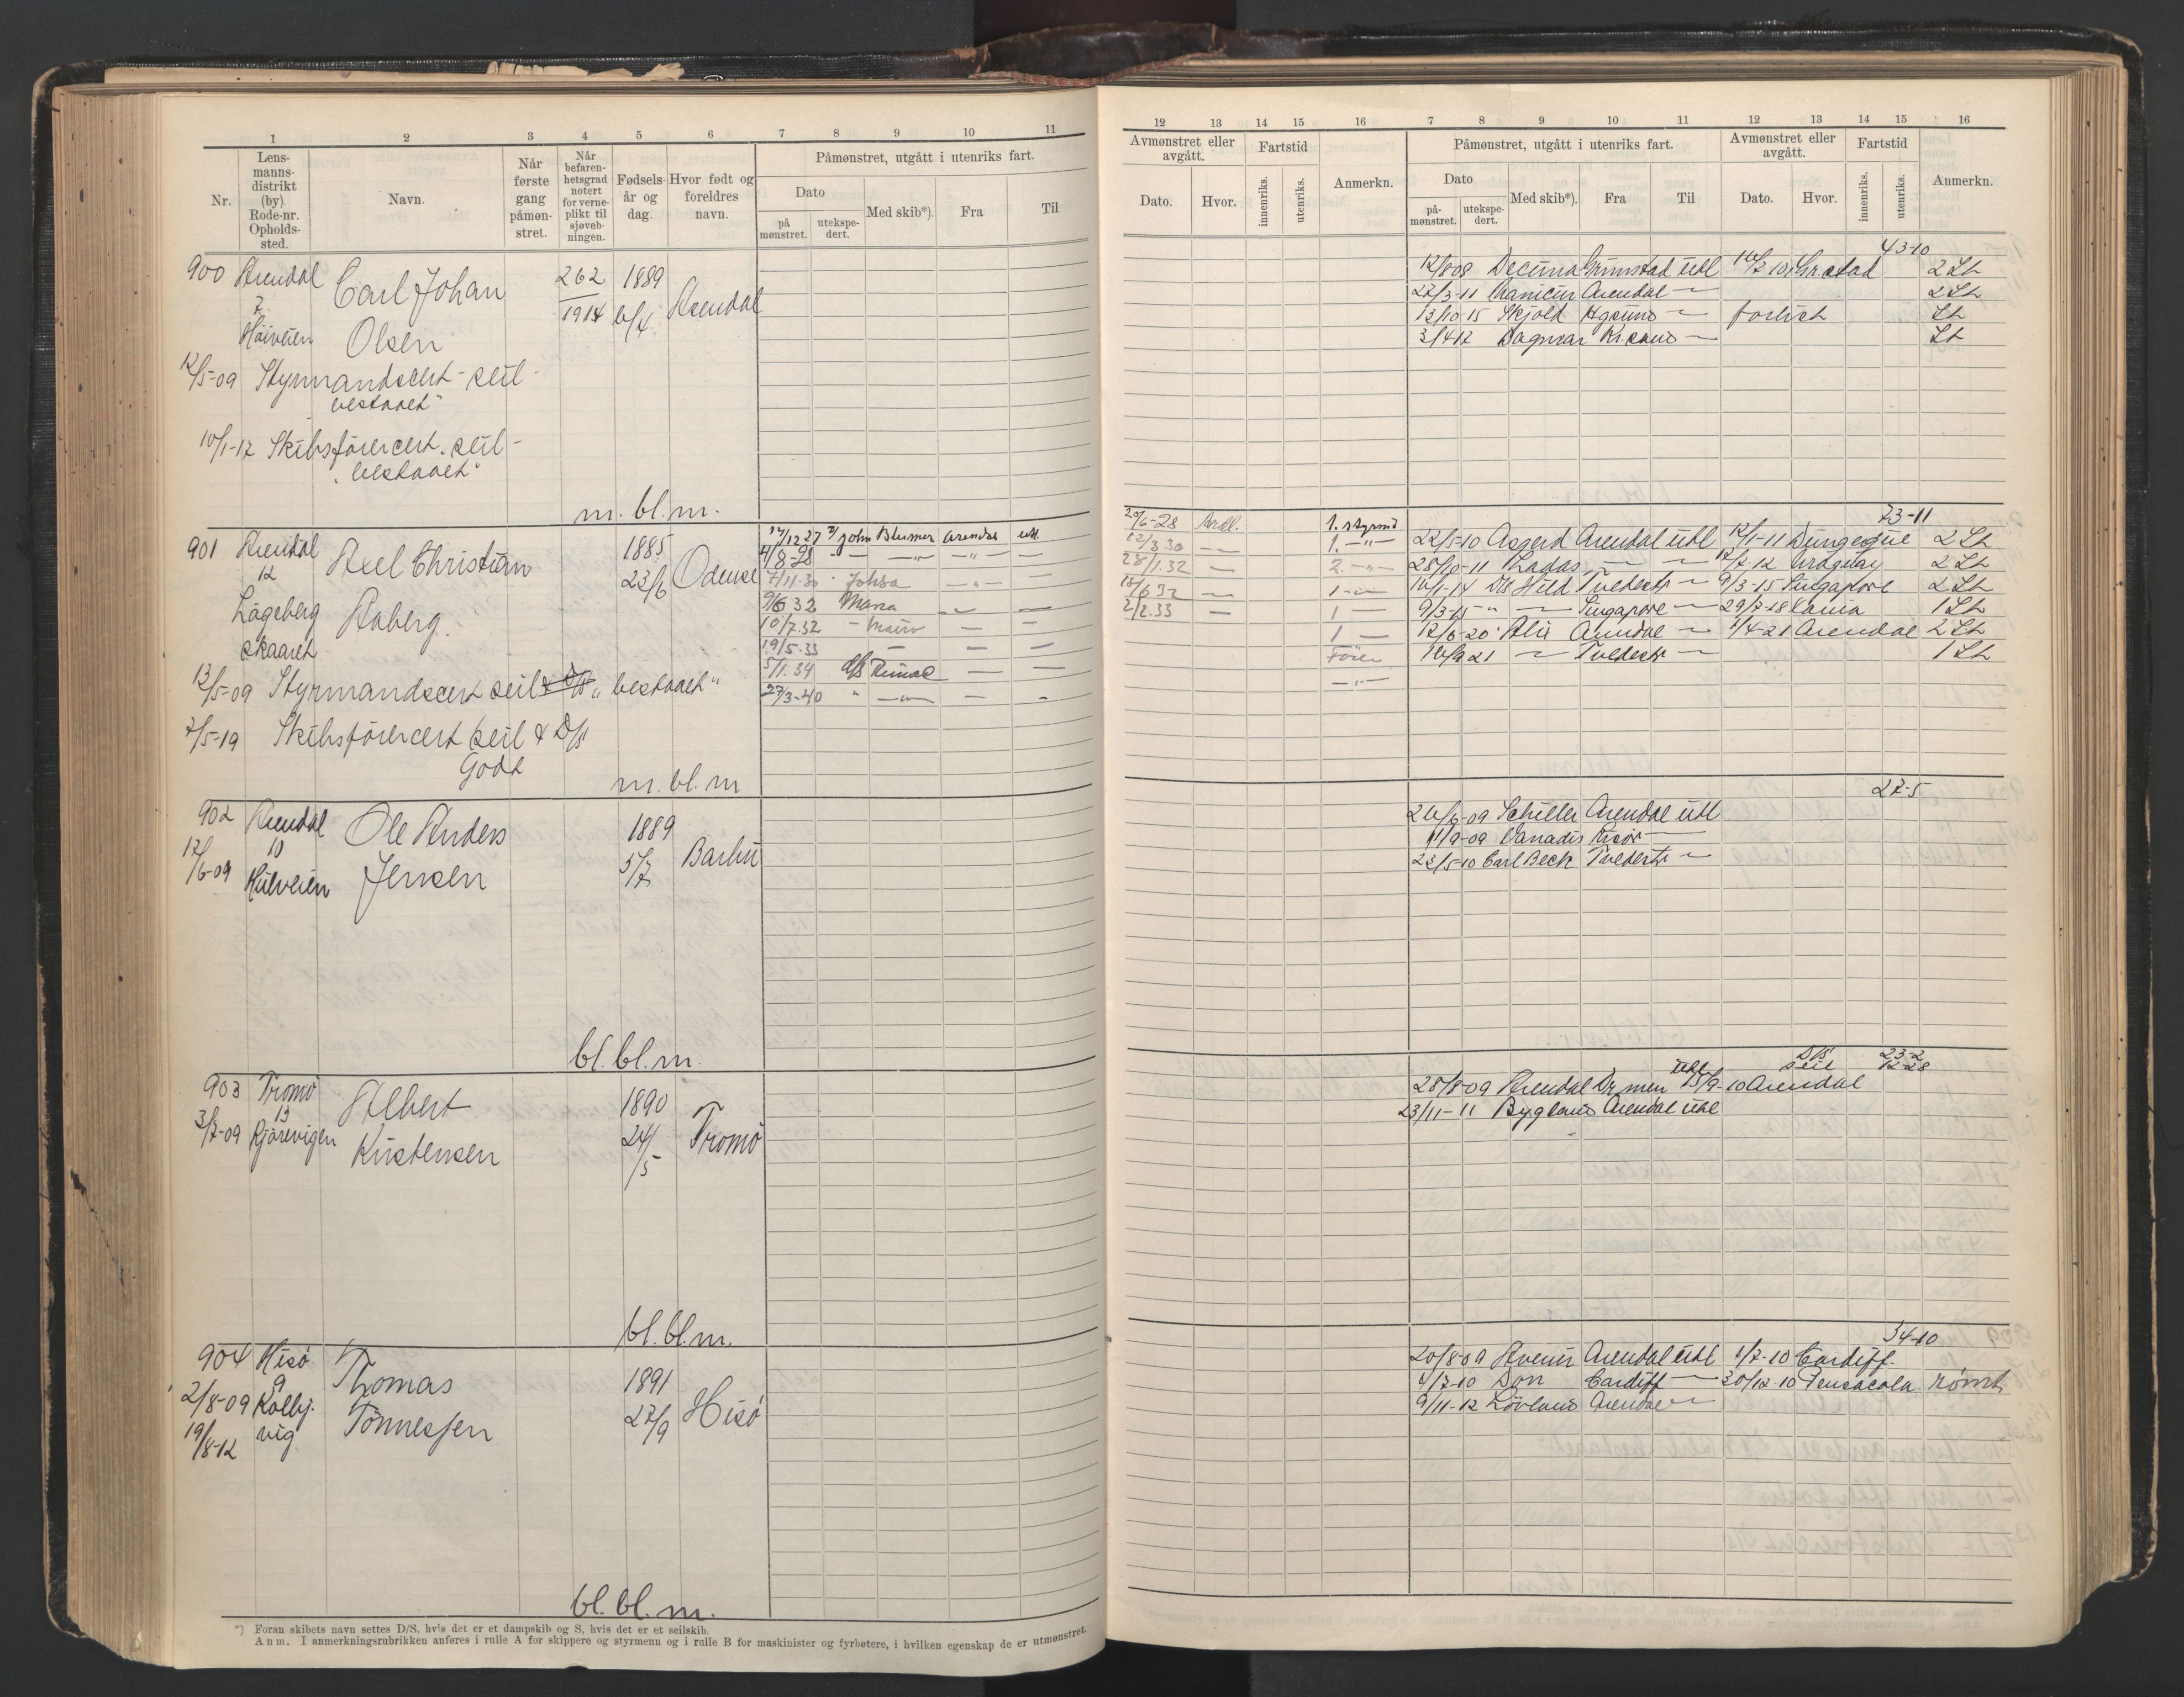 1 2 3 4 5 6 7 8 9 10 11
Nr.
Lens-
manns-
distrikt
(by)
Rode-nr.
Opholds-
sted.
Navn.
Når
første
gang
påmøn-
stret.
Når
befaren-
hetsgrad
notert
for verne-
plikt til
sjøveb-
ningen.
Fødsels-
år og
dag.
Hvor født og
foreldres
navn.
Påmønstret, utgått i utenriks fart.
Dato
på
mønstret.
utekspe-
dert.
Med skib*).
Fra
Til
900 Arendal Carl Johan 262 1889 Arendal
7 1914 6/4
Høiveien Olsen
12/5-09 Styrmandscert - seil -
bestaaet"
10/1-17 Skibsförercert. seil -
"bestaaet"
m. bl. m.
901 Arendal Axel Christian 1885 Odense
12 23/6
Lågeberg Aaberg.
skaaret
13/5-09 Styrmandscert seil & D/S "bestaaet"
7/5-19 Skibsförercert seil & D/S
Godt
m. bl. m
17/12 27 John Blumer Arendal utl.
4/8-28 " — —"— —"— —
7/11-30 " Johsa —"— —
9/6 32 Marra — —
10/7.32 — — —
19/5-33 — — —
5/1.34 d/s Rimac — —
27/3-40 " —"— — -
902 Arendal Ole Anders 1889 Barbu
10 5/7
12/6-09 Jensen
bl. bl. m.
903 Tromö Albert 1890 Tromö
13 24/5
3/7-09 Kjörevigen Kristensen
bl. bl. m.
904 Hisö Thomas 1891 Hisö
9 27/9
2/8-09 Kolbj. Tönnessen
19/8-12 vig
bl. bl. m.
*) Foran skibets navn settes D/S, hvis det er et dampskib og S, hvis det er et seilskib.
Anm. I anmerkningsrubrikken anføres i rulle A for skippere og styrmenn og i rulle B for maskinister og fyrbøtere, i hvilken egenskap de er utmønstret.
12 13 14 15 16 7 8 9 10 11 12 13 14 15 16
Avmønstret eller
avgått.
Dato.
Hvor.
Fartstid
innenriks.
utenriks.
Anmerkn.
Påmønstret, utgått i utenriks fart.
Dato
på-
mønstret.
utekspe-
dert.
Med skib*).
Fra
Til
Avmønstret eller
avgått.
Dato.
Hvor.
Fartstid
innenriks.
utenriks.
Anmerkn.
43-10
12/8 08 Decima Grimstad utl 2 St
27/3-11 Arendal — 2 St
12/10-15 Skjold — forlist St
3/4 17 Dagmar Kr.sand — St
73-11
20/6-28 Ardl. 1. styrmd
12/3 30 — 1. —"—
28/1.32 — 2. —"—
15/6 32 — 1 —"—
2/2.33 — 1 —
1 —
Förer
—"—
22/5-10 Asgerd Arendal utl 12/1-11 2 St
28/10-11 — — 17/7-12 Uruguay 2 St
10/1-14 D/S Hild Tvedestr — 9/3-15 Singapore 2 St
9/3-15 " — Singapore — 29/7-18 1 St
12/6-20 Arendal — 1/4-21 Arendal 2 St
— Tvedestr — 1 St
27-5
26/6-09 Schiller Arendal utl
11/9-09 Vanadis Risör —
23/5-10 Carl Beck Tvedestr —
D/S 23-2
seil 12-28
28/8-09 Arendal Drmen utl 15/9-10 Arendal
23/11-11 Bygland Arendal utl
34-10
20/8-09 Avenir Arendal utl 1/7-10 Cardiff.
1/7-10 Don Cardiff — 30/12-10 Pensacola römt
9/11-12 Lövland Arendal —